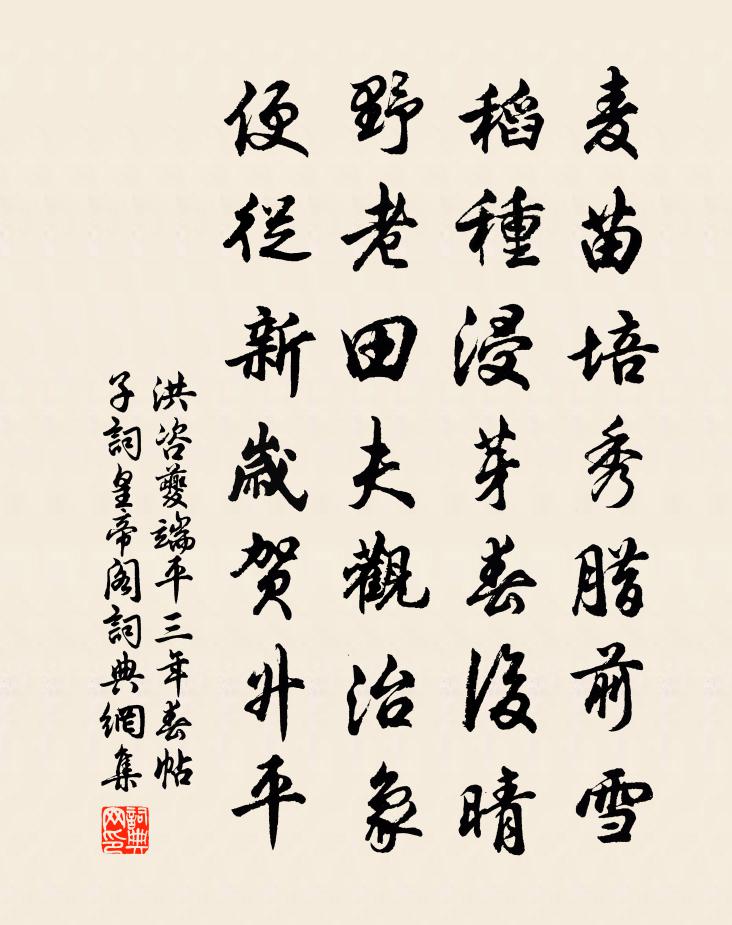 麦苗培秀腊前雪
稻種浸芽春後晴
野老田夫觀治象
便從新歲賀升平
洪咨夔端平三年春帖
子詞皇帝阁詞典網集
詞典网印